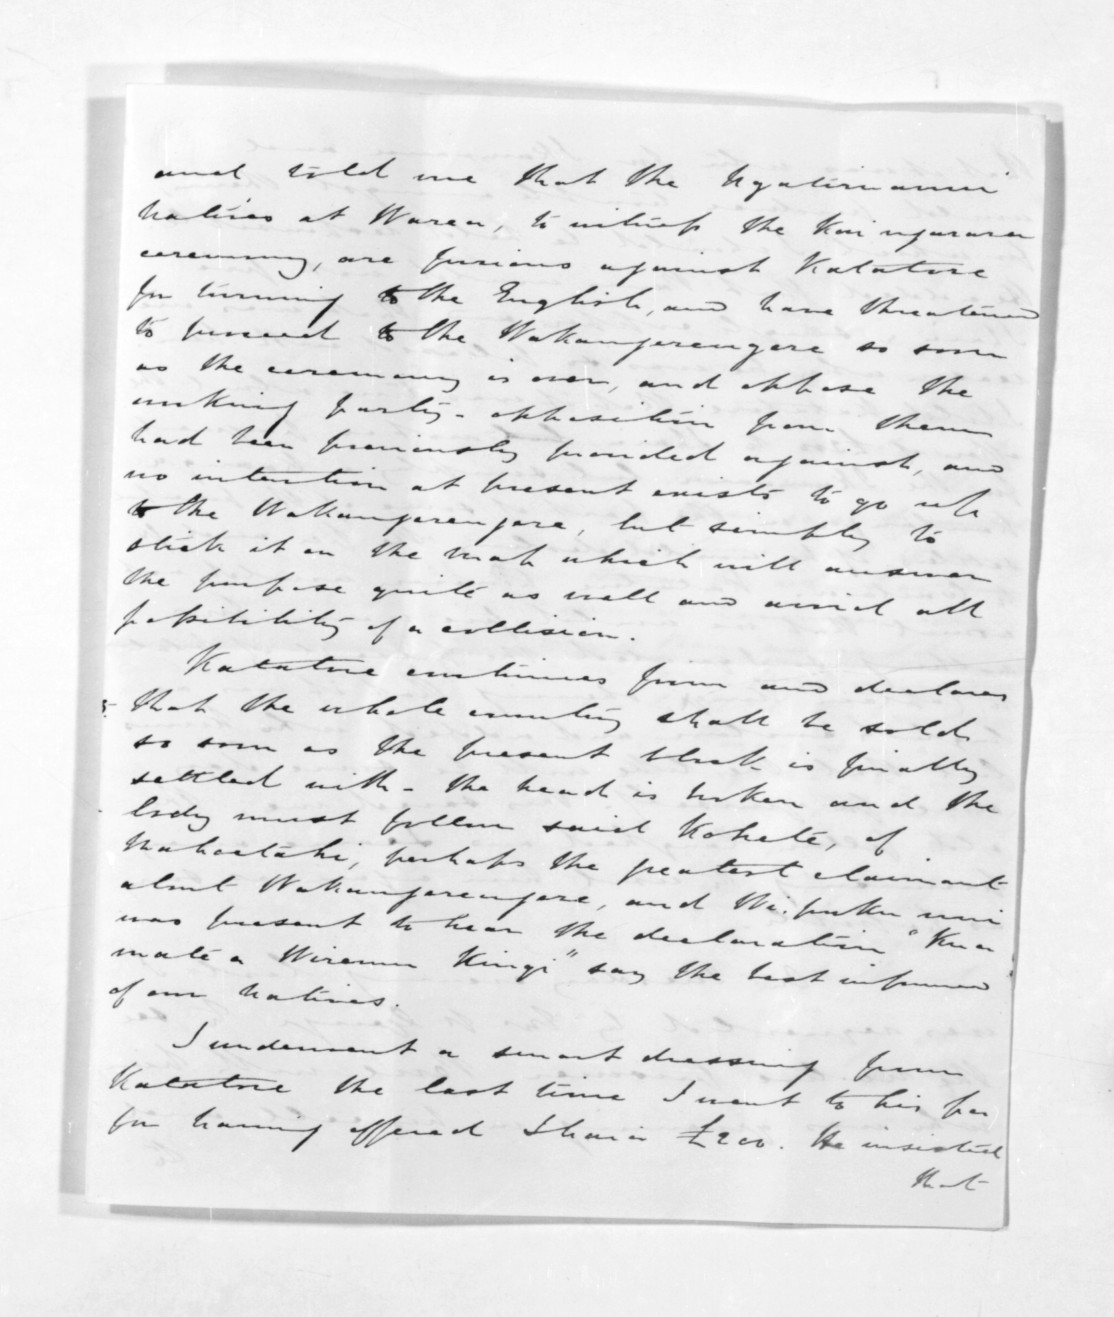 and told me that the Ngatimaniu
natives at Warea, to witness the Kai ngarara
ceremony, are furious against Katatore
for turning to the English, and have threatened
to proceed to the Wakangerengere so soon
as the ceremony is over, and oppose the
working party - opposition from them
had been previously provided against, and
no intention at present exists to go up
to the Wakangerengere, but simply to
stick it on the map which will answer
the purpose quite as well and avoid all
possibility of a collision.
Katatore continues firm and declares
that the whole country shall be sold
so soon as the present block is finally
settled with - the head is broken and the
body must follow said Kokete, of
perhaps the greatest claimant
about Wakangerengere, and Wi.
was present to hear the declaration "Kua
mate a Wiremu Kingi" say the best informed
of our natives.
I underwent a smart dressing from
Katatore the last time I went to his pa
for having offered Ihaia £200. He insisted
that